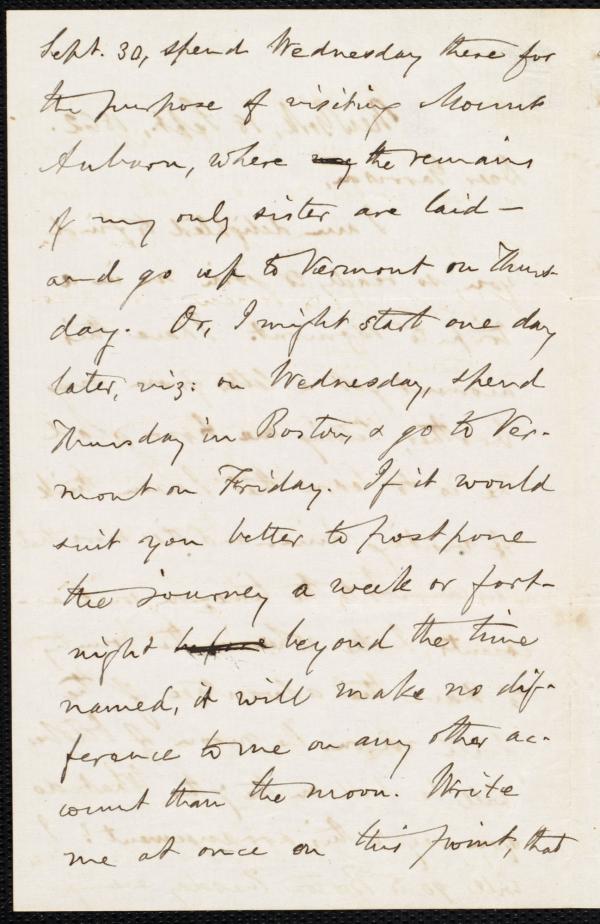 Sept. 30, spend Wednesday there for
the purpose of visiting Mount
Auburn, where my the remains
of my only sister are laid —
and go up to Vermont on Thurs-
day. Or, I might start one day
later, viz: on Wednesday, spend
Thursday in Boston, & go to Ver-
mont on Friday. If it would
suit you better to postpone
the journey a week or fort-
night before beyond the time
named, it will make no dif-
ference to me on any other ac-
count than the moon. Write
me at once on this point, that